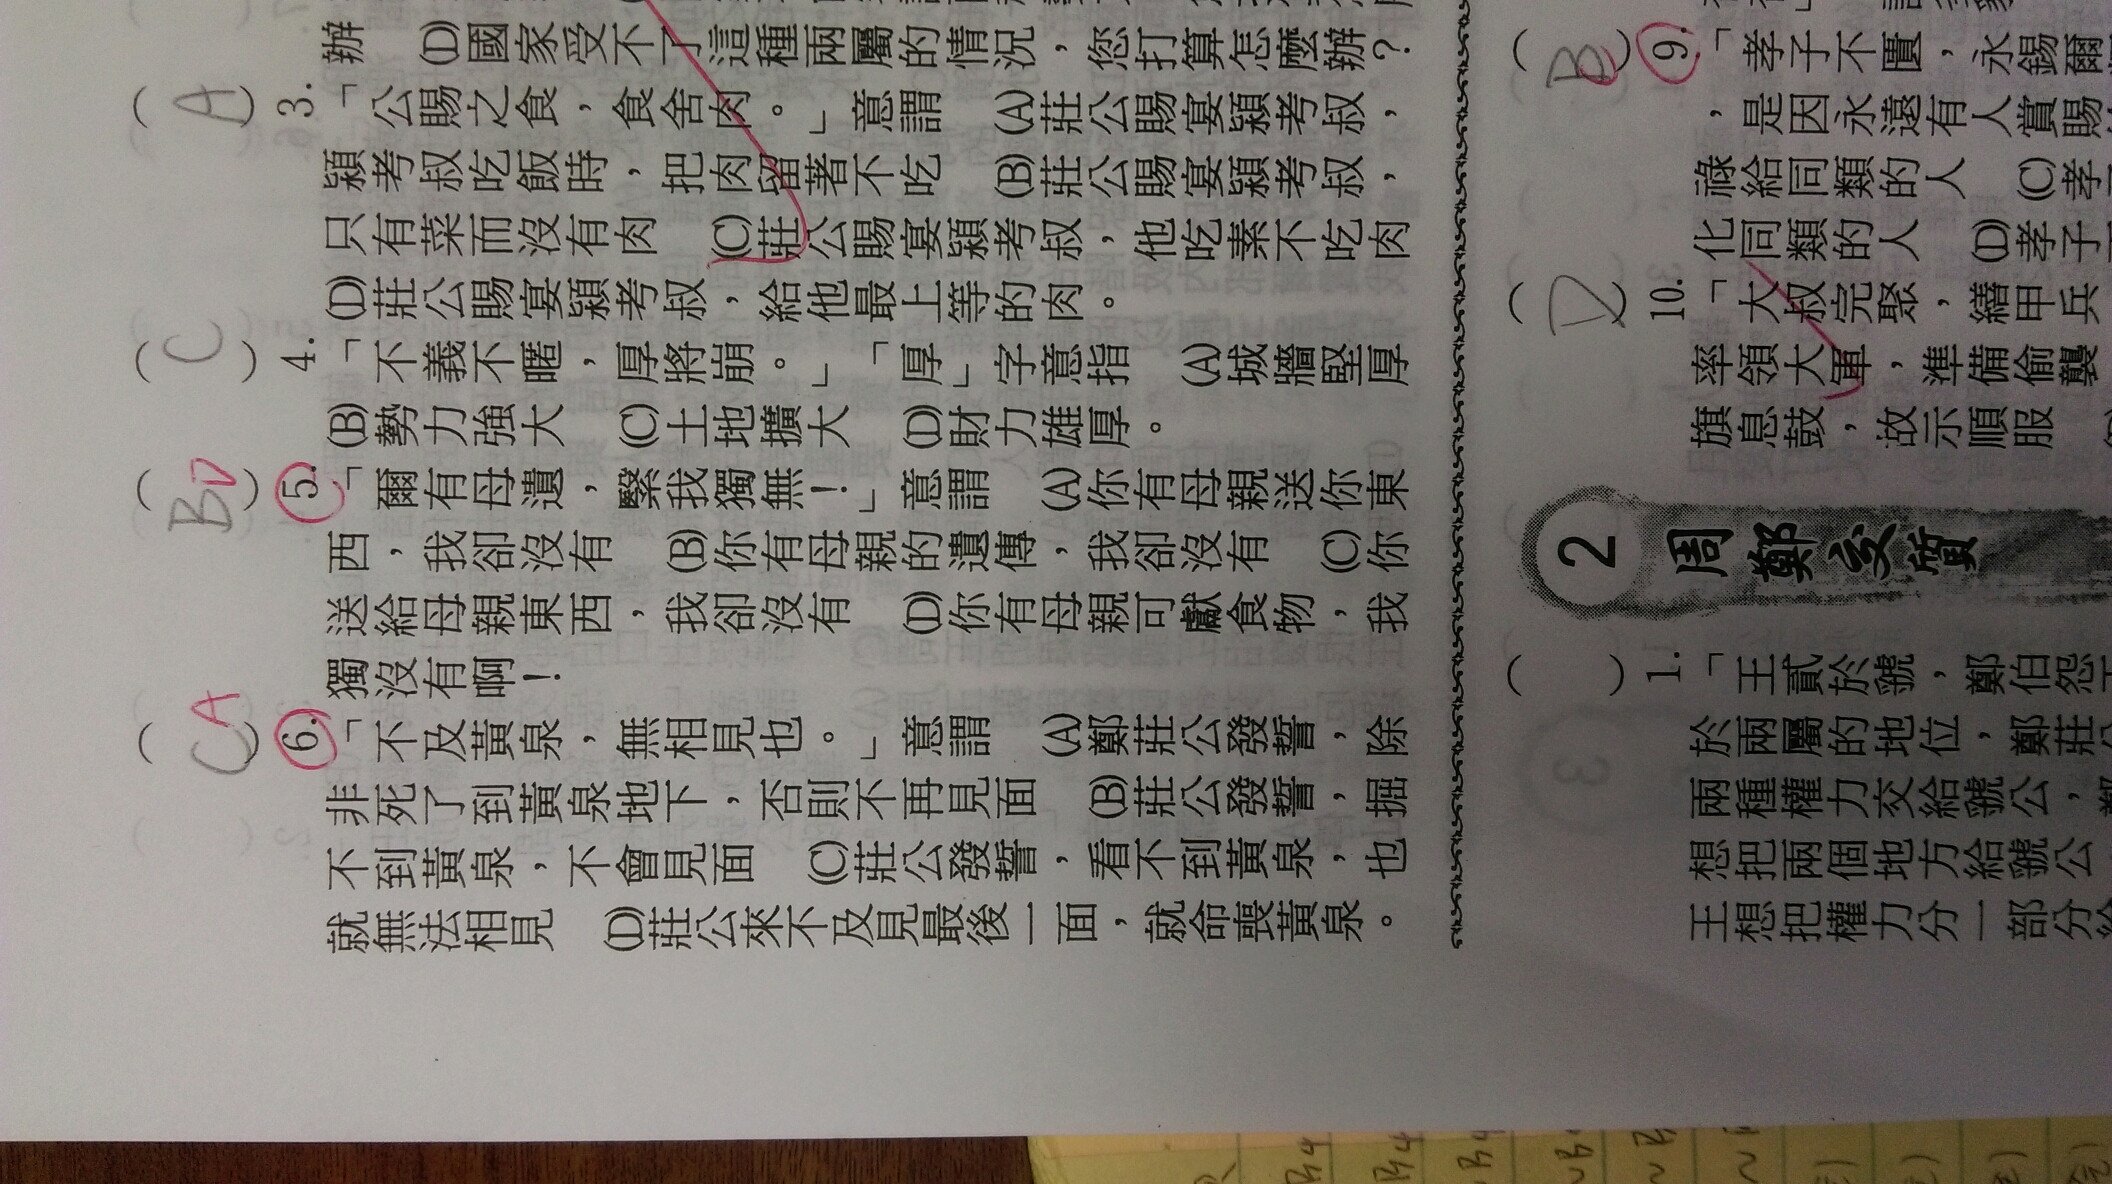 辦　(D)國家受不了這種兩屬的情況，您打算怎麼辦？
( A ) 3.「公賜之食，食舍肉。」意謂　(A)莊公賜宴潁考叔，
潁考叔吃飯時，把肉留著不吃　(B)莊公賜宴潁考叔，
只有菜而沒有肉　(C)莊公賜宴潁考叔，他吃素不吃肉
(D)莊公賜宴潁考叔，給他最上等的肉。
( C ) 4.「不義不暱，厚將崩。」「厚」字意指　(A)城牆堅厚
(B)勢力強大　(C)土地擴大　(D)財力雄厚。
( B D ) 5.「爾有母遺，繄我獨無！」意謂　(A)你有母親送你東
西，我卻沒有　(B)你有母親的遺傳，我卻沒有　(C)你
送給母親東西，我卻沒有　(D)你有母親可獻食物，我
獨沒有啊！
( C A ) 6.「不及黃泉，無相見也。」意謂　(A)鄭莊公發誓，除
非死了到黃泉地下，否則不再見面　(B)莊公發誓，掘
不到黃泉，不會見面　(C)莊公發誓，看不到黃泉，也
就無法相見　(D)莊公來不及見最後一面，就命喪黃泉。
( B ) 9.「孝子不匱，永錫爾
，是因永遠有人賞賜
祿給同類的人　(C)孝
化同類的人　(D)孝子
( D ) 10.「大叔完聚，繕甲兵
率領大軍，準備偷襲
旗息鼓，故示順服
2 周鄭交質
(　) 1.「王貳於虢，鄭伯怨
於兩屬的地位，鄭莊
兩種權力交給虢公，
想把兩個地方給虢公
王想把權力分一部分